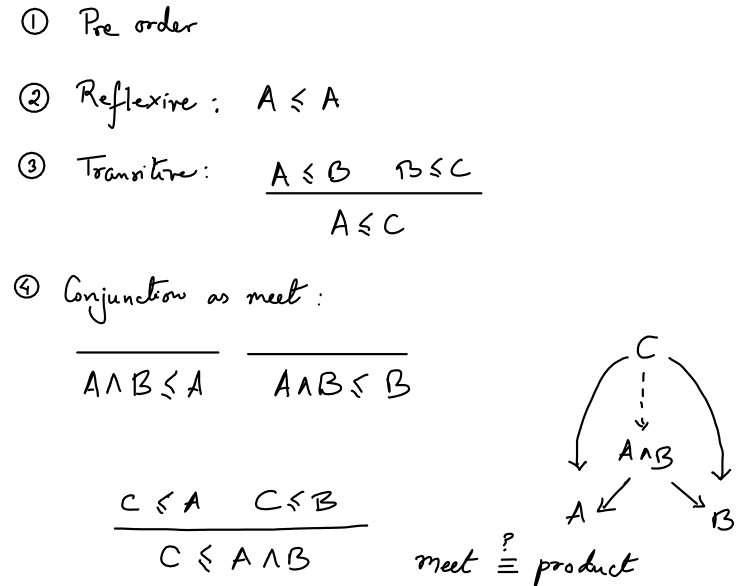 ① Pre order
② Reflexive : A ≤ A
③ Transitive : A ≤ B B ≤ C
A ≤ C
④ Conjunction as meet :
A ∧ B ≤ A A ∧ B ≤ B
C
A ∧ B
A B
C ≤ A C ≤ B
C ≤ A ∧ B
meet ≡? product